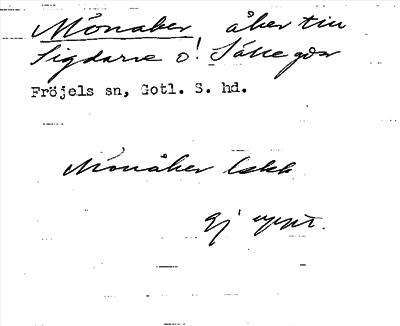 Mönaker, åker till
Sigdarve o. Sälle gdr
Fröjels sn, Gotl. S. hd.
Mónåker
ej uppt.